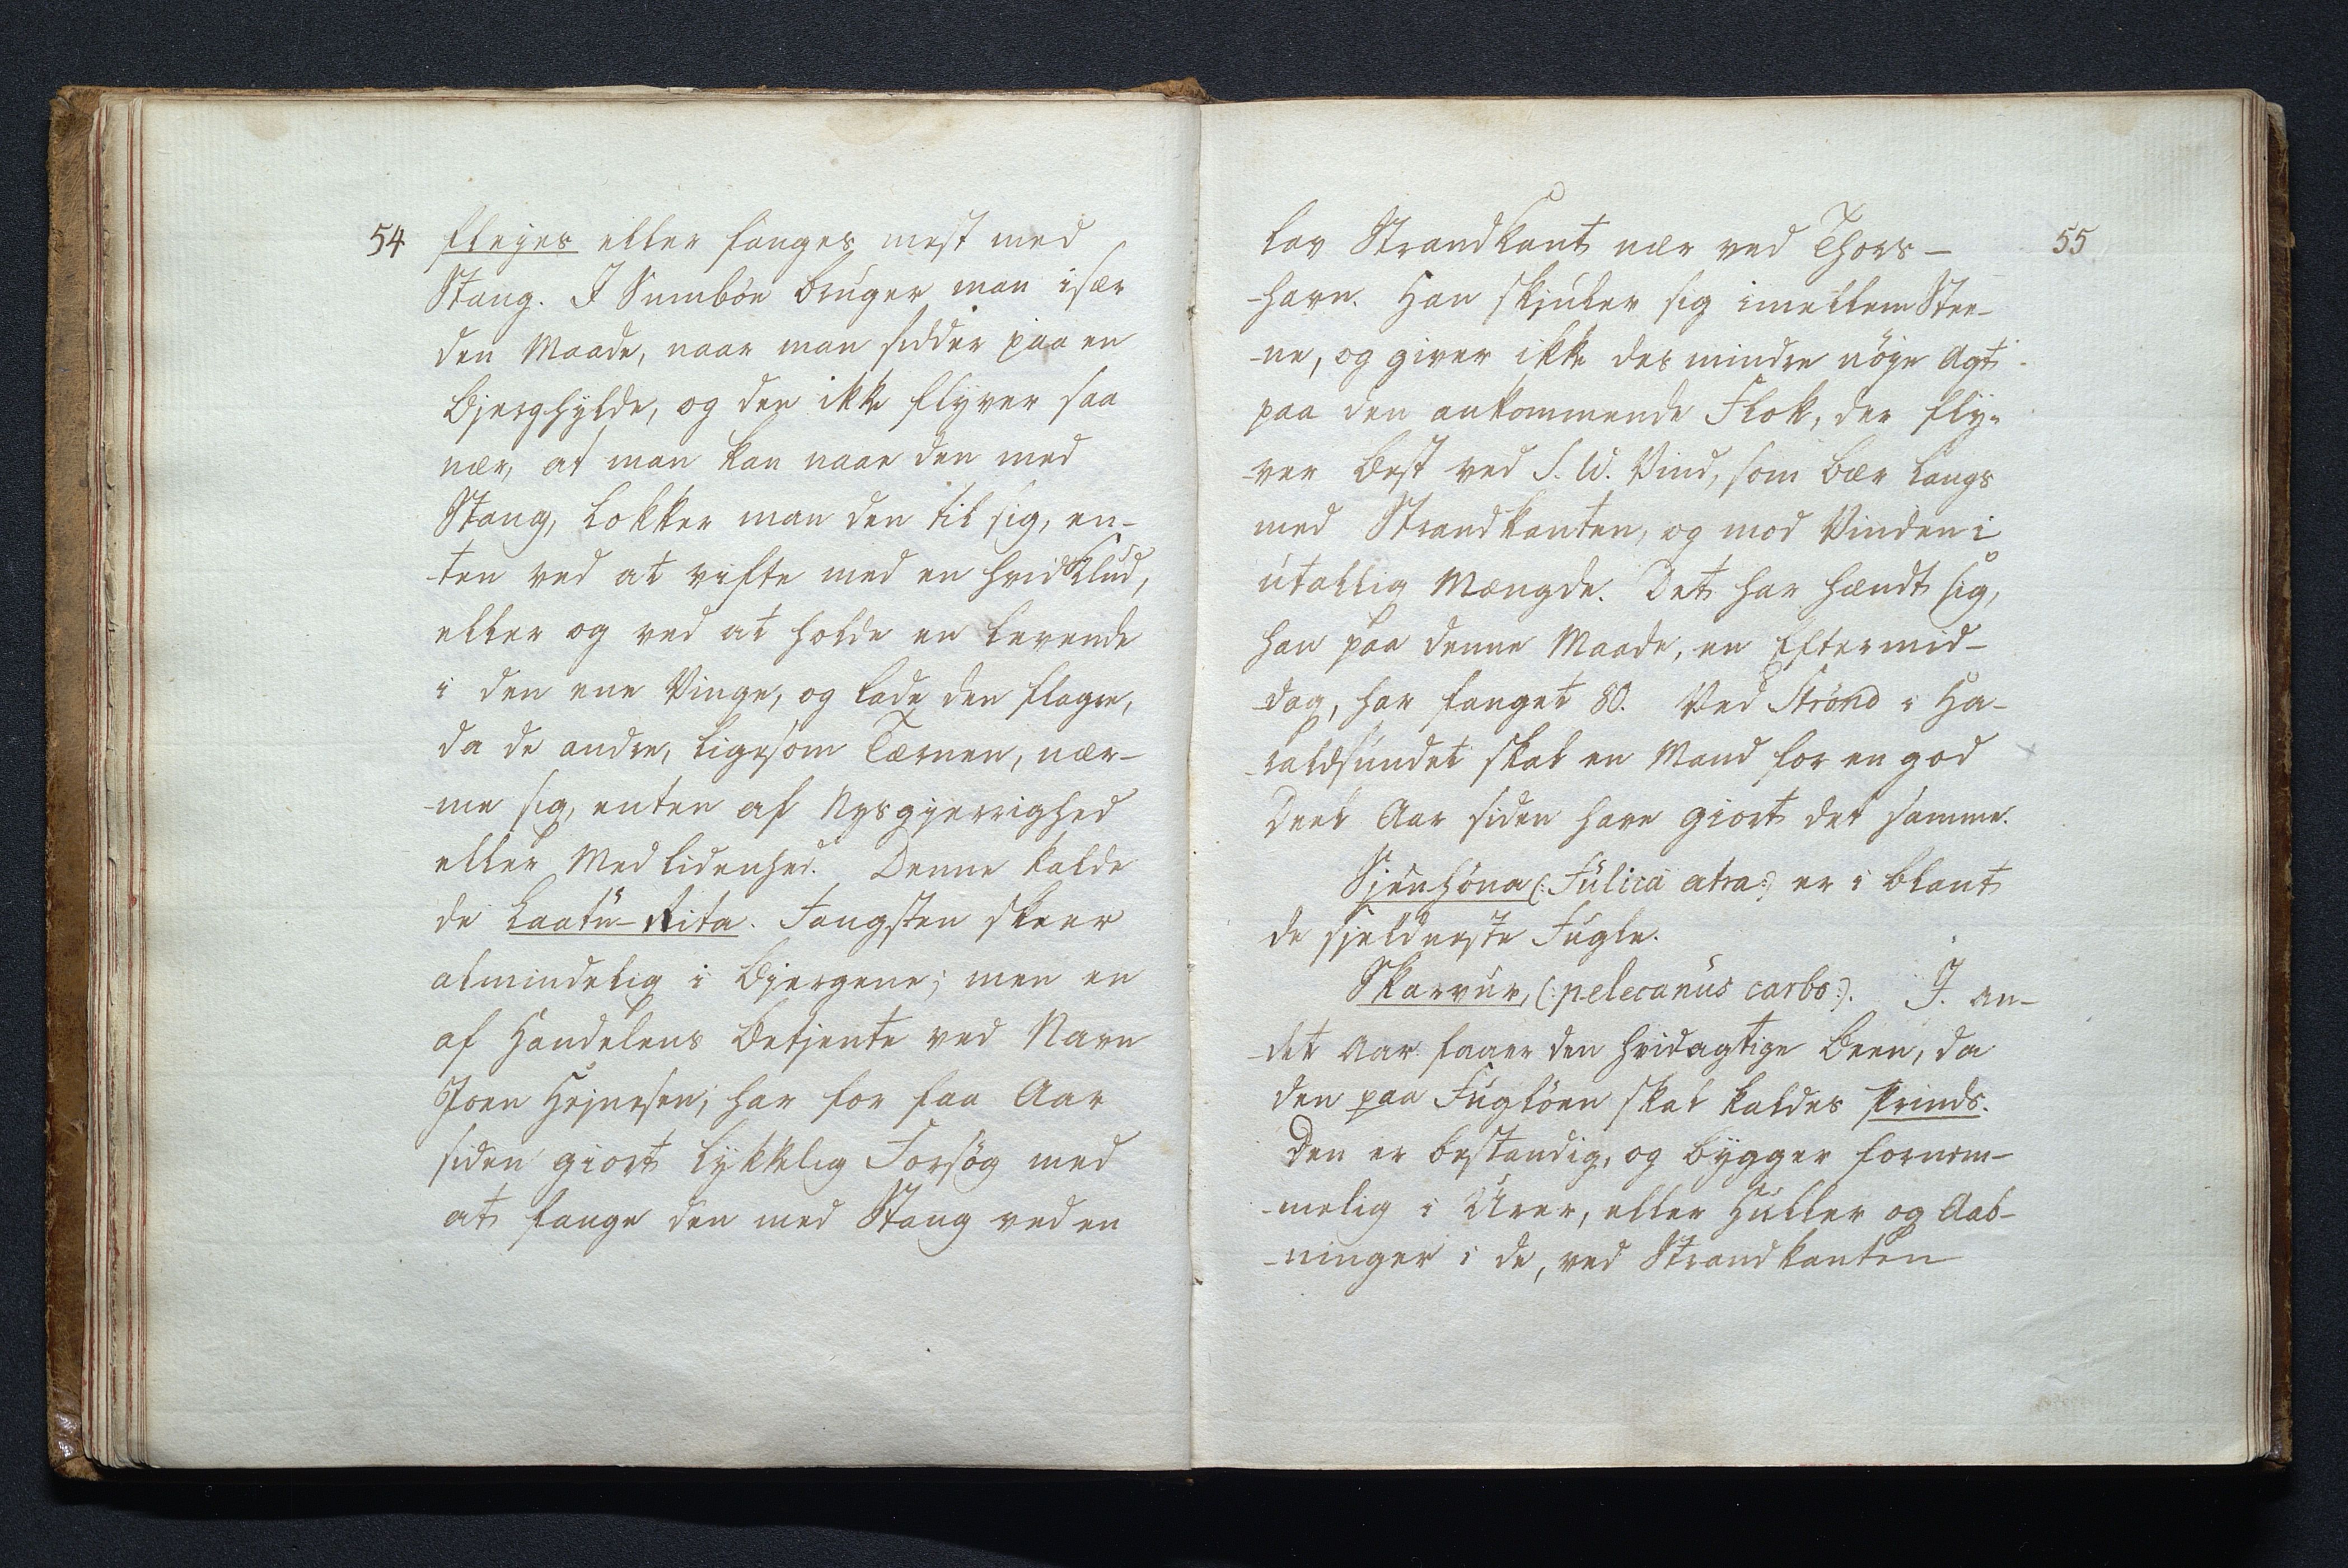 54 fleyes eller fanges mest med
Stang. I Sumböe bruger man især
den Maade, naar man sidder paa en
Bjerghylde, og den ikke flyver saa
nær, at man kan naae den med
Stang, lokker man den til sig, en-
-ten ved at vifte med en hvid Klud,
eller og ved at holde en levende
i den ene Vinge, og lade den flagre,
da de andre, ligesom Tærnen, nær-
-me sig, enten af Nysgjerrighed
eller Medlidenhed. Denne kalde
de Laatu-Rita. Fangsten skeer
almindelig i Bjergene; men en
af Handelens Betjente ved Navn
Joen Hejnesen, har for faa Aar
siden giort lykkelig Forsög med
at fange den med Stang ved en
55
lav Strandkant nær ved Thors-
-havn. Han skjuler sig imellem Stee-
-ne, og giver ikke des mindre nöje Agt
paa den ankommende Flok, der fly-
-ver best ved S.W. Vind, som bær langs
med Strandkanten, og mod Vinden i
utallig Mængde. Det har hændt sig,
han paa denne Maade, en Eftermid-
-dag, har fanget 80. Ved Strönd i Ha-
-raldsundet skal en Mand for en god
Deel Aar siden have giort det samme.
Sjeuhöna (: Fulica atra:) er i blant
de sjeldneste Fugle.
Skarvur, (: pelecanus carbo:). I an-
-det Aar faaer den hvidagtige Been, da
den paa Fuglöen skal kaldes Krinds.
Den er bestandig, og bygger fornem-
-melig i Urer, eller Huller og Aab-
-ninger i de, ved Strandkanten